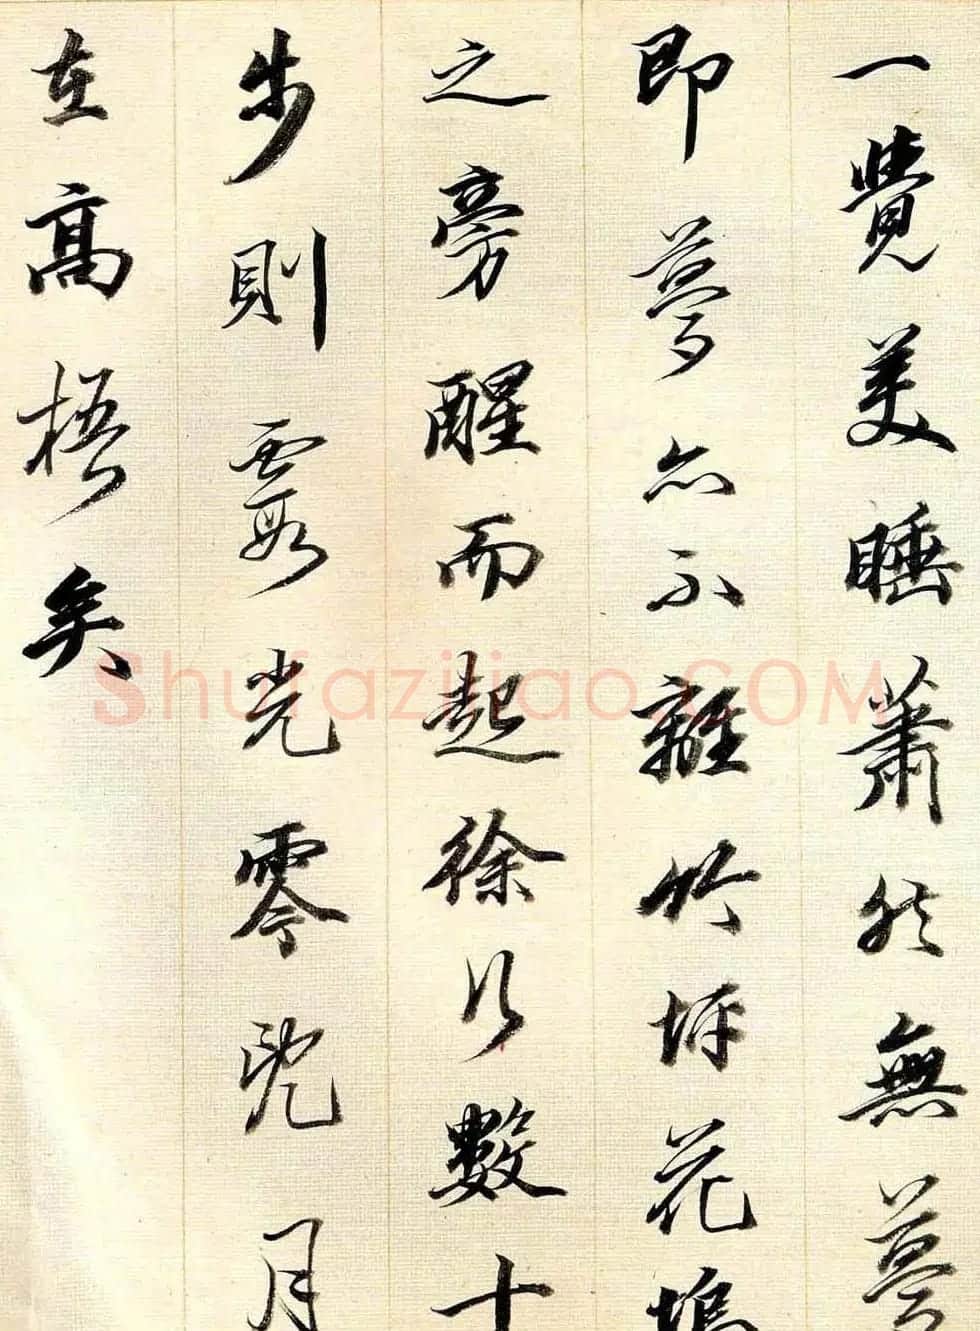 一覺美睡蕭然無夢
即夢亦不離竹坪花塢
之旁醒而起徐行數十
步則霞光零亂月
在高梧矣
Shufaziliao.COM